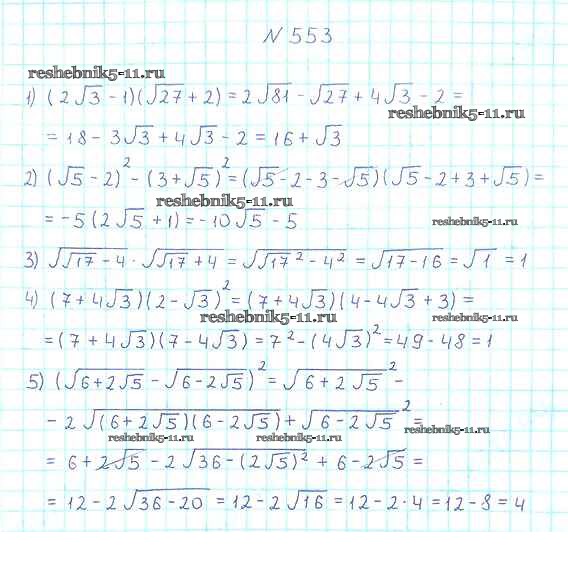 N 553
reshebnik5-11.ru
1) (2√3 - 1)(√27 + 2) = 2√81 - √27 + 4√3 - 2 =
reshebnik5-11.ru
= 18 - 3√3 + 4√3 - 2 = 16 + √3
2) (√5 - 2)² - (3 + √5)² = (√5 - 2 - 3 - √5)(√5 - 2 + 3 + √5) =
reshebnik5-11.ru
= -5(2√5 + 1) = -10√5 - 5
reshebnik5-11.ru
3) √(√17 - 4) · √(√17 + 4) = √(√17² - 4²) = √(17 - 16) = √1 = 1
4) (7 + 4√3)(2 - √3)² = (7 + 4√3)(4 - 4√3 + 3) =
reshebnik5-11.ru reshebnik5-11.ru
= (7 + 4√3)(7 - 4√3) = 7² - (4√3)² = 49 - 48 = 1
5) (√(6 + 2√5) - √(6 - 2√5))² = √(6 + 2√5)² -
- 2√((6 + 2√5)(6 - 2√5)) + √(6 - 2√5)² =
reshebnik5-11.ru
reshebnik5-11.ru reshebnik5-11.ru
= 6 + 2√5 - 2√(36 - (2√5)²) + 6 - 2√5 =
= 12 - 2√(36 - 20) = 12 - 2√16 = 12 - 2 · 4 = 12 - 8 = 4